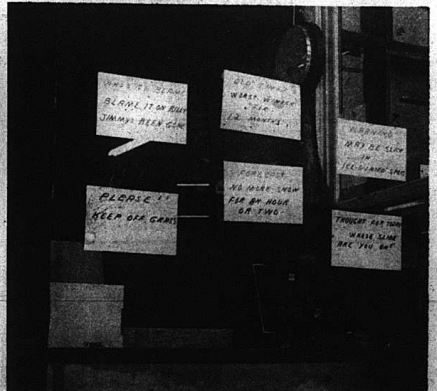 BLAME IT ON
JIMMYS BEEN
WORST WINTER
12 MONTHS.
WARNING
MAY BE SLICK
IN
SPOTS
PLEASE!!
KEEP OFF GRASS
FORECAST
NO MORE SNOW
FOR AN HOUR
OR TWO-
THOUGHT FOR TODAY
WHOSE SLIDE
ARE YOU ON?